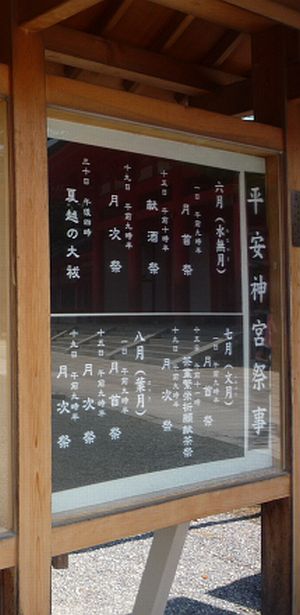 平安神宮祭事
六月（水無月）
一日 午前九時半
月首祭
十五日 午前十時半
献酒祭
十九日 午前九時半
月次祭
三十日 午後四時
夏越の大祓
七月（文月）
一日 午前九時半
月首祭
十五日 午前十一時
茶業繁栄祈願献茶祭
十九日 午前九時半
月次祭
八月（葉月）
一日 午前九時半
月首祭
十五日 午前九時半
月次祭
十九日 午前九時半
月次祭